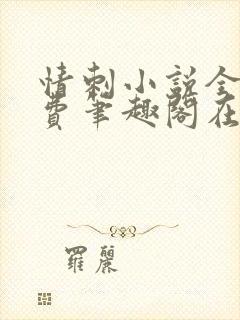 情刺小說全
費筆趣閣在
羅麗